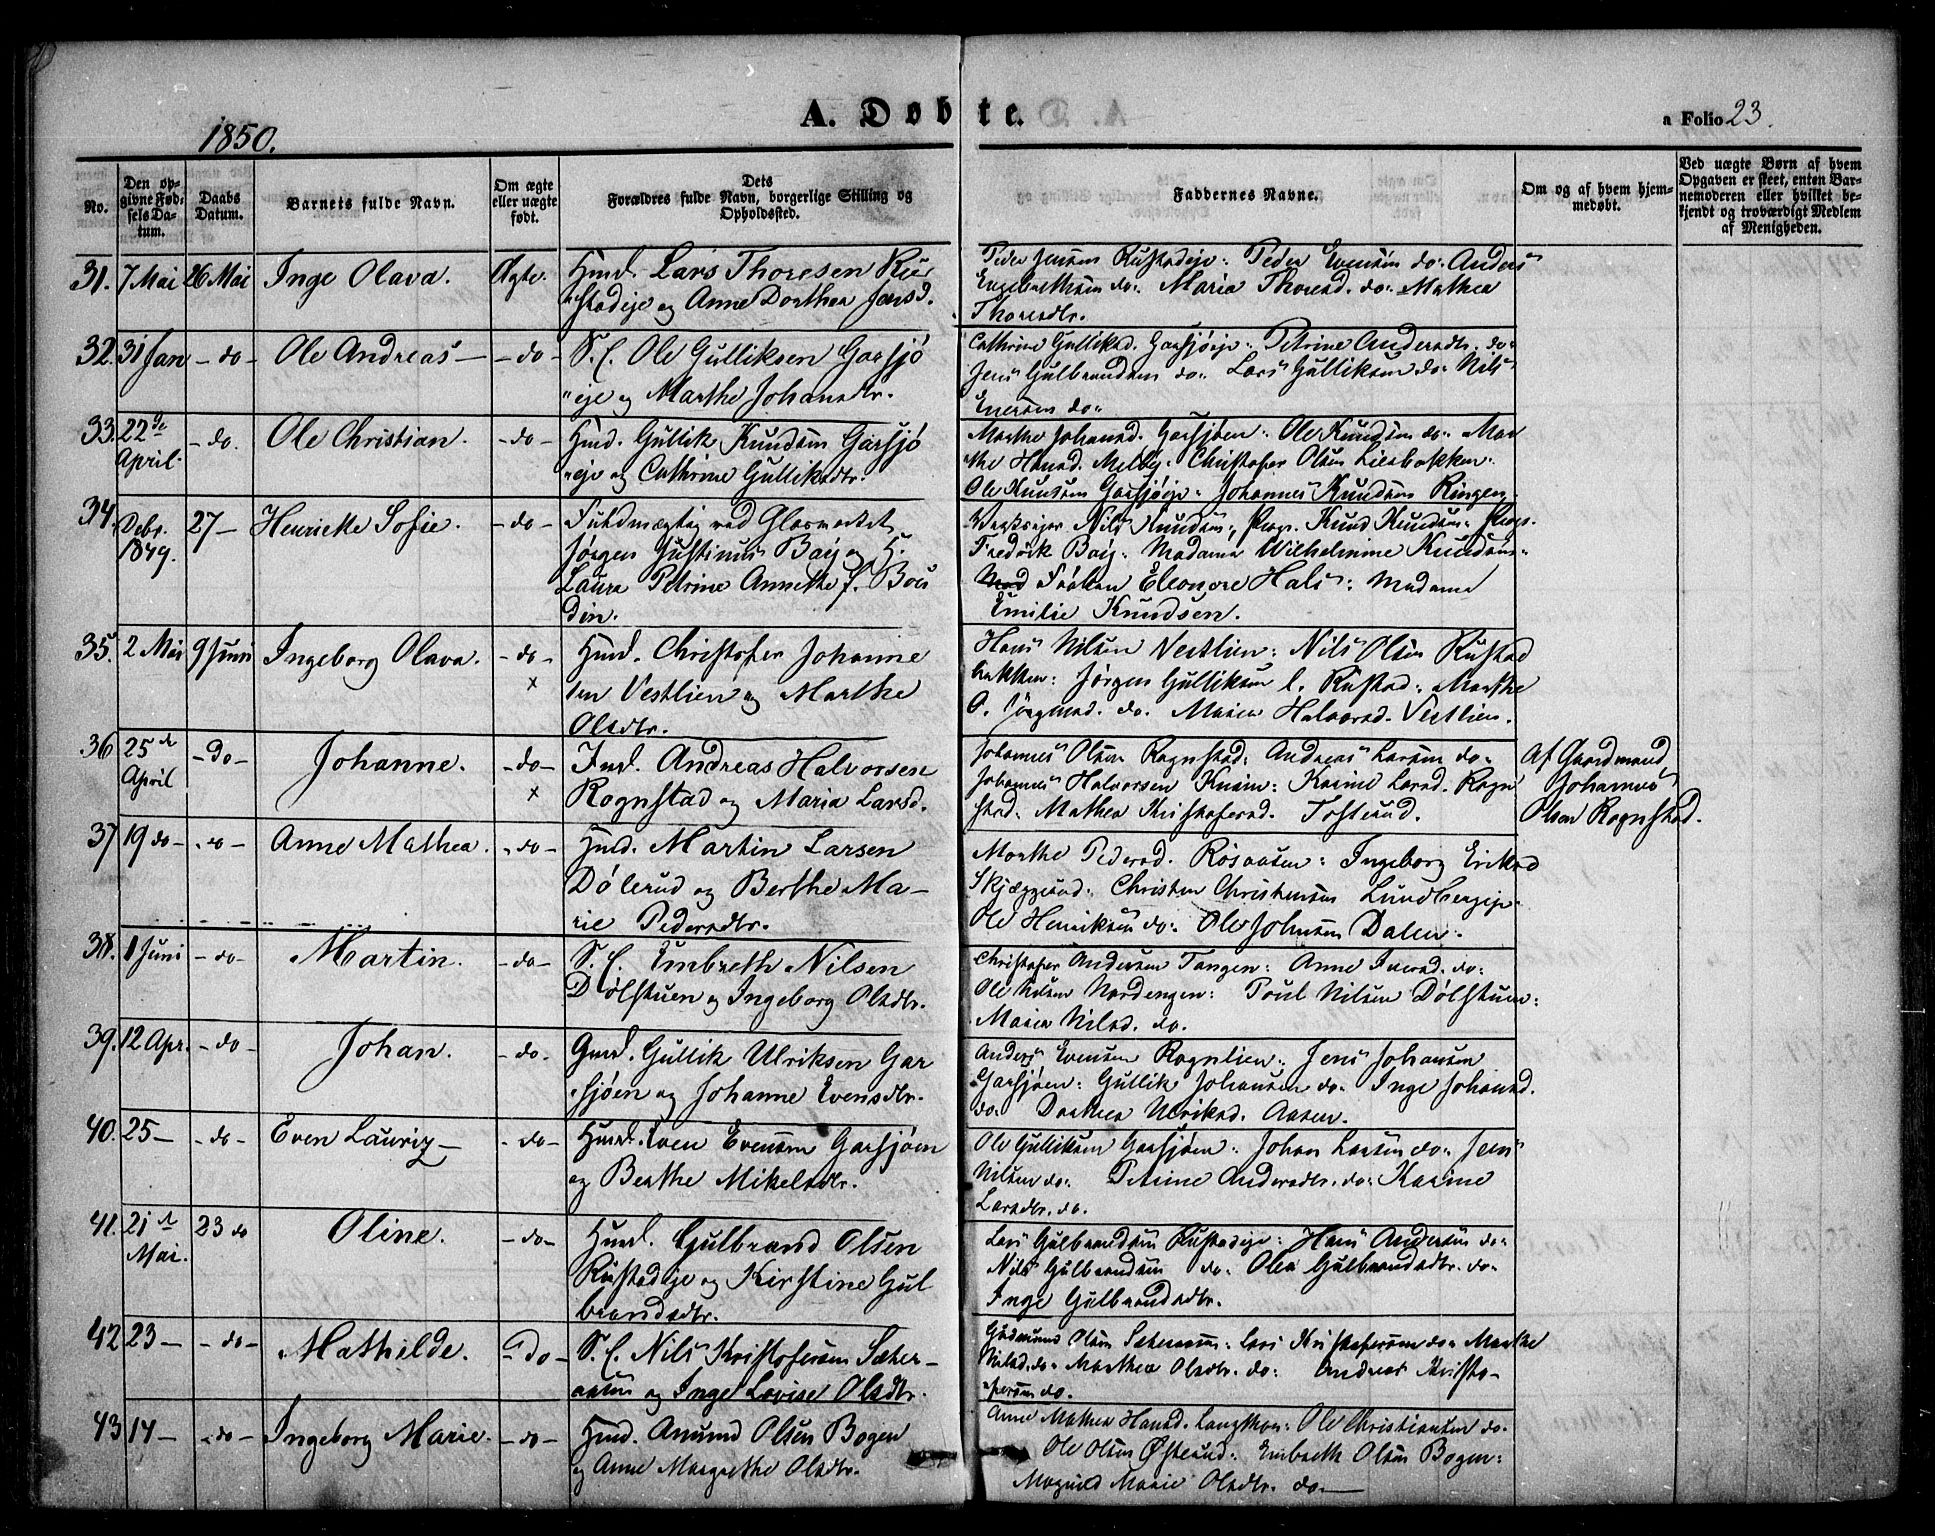 1850.
A. Døbte.
a Folio 23.
No.
Den opgivne Fødselsdatum.
Daabs Datum.
Barnets fulde Navn.
Om ægte eller uægte født.
Dets Forældres fulde Navn, borgerlige Stilling og Opholdssted.
Faddernes Navne.
Om og af hvem hjemmedøbt.
Ved uægte Børn af hvem Opgaven er skeet, enten Barnemoderen eller hvilket bekjendt og troværdigt Medlem af Menigheden.
31. 7 Mai 26 Mai Inge Olava. Ægte.
Hmd. Lars Thoresen Ru
stadeje og Anne Dorthea Jensd.
Peder Jensen Rustadeje: Peder Evensen do: Anders
Engebrethsen do: Maria Thoresd. do: Mathea
Thoresdtr.
32. 31 Jan - do - Ole Andreas - - do -
S. f. Ole Gulliksen Garsjø
"eje og Marthe Johansdtr.
Cathrine Gulliksd. Garsjøeje: Petrine Andersdtr. do:
Jens Gulbrandsen do: Lars Gulliksen do: Nils
Enersen do:
33. 22de April - do. Ole Christian. - do -
Hmd. Gullik Knudsen Garsjø
"eje og Cathrine Gulliksdtr.
Marthe Johansd. Garsjøen: Ole Knudsen do: Mar
the Hansd. Melby: Christofer Olsen Liesbakken:
Ole Knudsen Garsjøeje: Johannes Knudsen Ringen.
34. Debr. 1849. 27 - Henriette Sofie. - do -
Fuldmægtig ved Glasverket
Jørgen Justinus Bay og H.
Laura Petrine Annette f. Bou
din.
Nils Knudsen: Knud Knudsen:
Fredrik Bay: Madame Wilhelmine Knudsen:
Frøken Eleonore Hals: Madame
Emilie Knudsen.
35. 2 Mai 9 Juni Ingeborg Olava. - do -
×
Hmd. Christofer Johanne
sen Vestlien og Marthe
Olsdtr.
Hans Nilsen Vestlien: Nils Olsen Rustad
bakken: Jørgen Gulliksen l. Rustad: Marthe
O. do. Maren Halvorsd. Vestlien.
36 25de April - do - Johanne. - do -
×
Ind. Andreas Halvorsen
Rognstad og Maria Larsd.
Johannes Olsen Rognstad: Andreas Larsen do:
Johannes Halvorsen: Karine Larsd. Rogn
stad: Mathea Kristofersd. Tosterud.
Af Gaardmand
Johannes
Olsen Rognstad.
37 19 do - - do - Anne Mathea. - do -
Hmd. Martin Larsen
Dølerud og Berthe Ma-
rie Pedersdtr.
Marthe Pedersd. Røsaasen: Ingeborg Eriksd
Skjæggerud: Christen Christensen Lundbergeje:
Ole Henriksen do: Ole Johnsen Dalen.
38. 1 Juni - do - Martin. - do -
S. f. Embreth Nilsen
Dølstuen og Ingeborg Olsdtr.
Christofer Andersen Tangen: Anne Iversd. do:
Ole Nilsen Nordengen: Poul Nilsen Dølstuen:
Maren Nilsd. do.
39. 12 Apr. - do - Johan. - do -
Gmd. Gullik Ulriksen Gar
sjøen og Johanne Evensdtr.
Anders Evensen Rognlien: Jens Johansen
Garsjøen: Gullik Johansen do: Inge Johansd.
do: Dorthea Ulriksd. Aasen.
40. 25 - - do - Even Lauriz - - do -
Hmd. Even Evensen Garsjøen
og Berthe Mikelsdtr.
Ole Gulliksen Garsjøen: Johan Larsen do: Jens
Nilsen do: Petrine Andersdtr. do: Karine
Larsdtr. do.
41. 21de Mai. 23 do Oline. - do -
Hmd. Gulbrand Olsen
Rustadeje og Kirstine Gul
brandsdtr.
Lars Gulbrandsen Rustadeje: Hans Andersen do:
Nils Gulbrandsen do: Olea Gulbrandsdtr. do:
Inge Gulbrandsdtr.
42 23 - - do - Mathilde. - do -
S. f. Nils Kristofersen Sæter-
aasen og Inge Lovise Olsdtr.
Gudmund Olsen Sæteraasen: Lars Kristofersen do: Marthe
Nilsd. do: Marthea Olsdtr. do: Andreas Kristo-
fersen do.
43 14 - - do - Ingeborg Marie. - do -
Hmd. Amund Olsen Bogen
og Anne Margrethe Olsdtr.
Anne Mathea Hansd. Ole Christiansen do.
Ole Olsen Østerud: Embreth Olsen Bogen:
Magnild Marie Olsdtr. do -